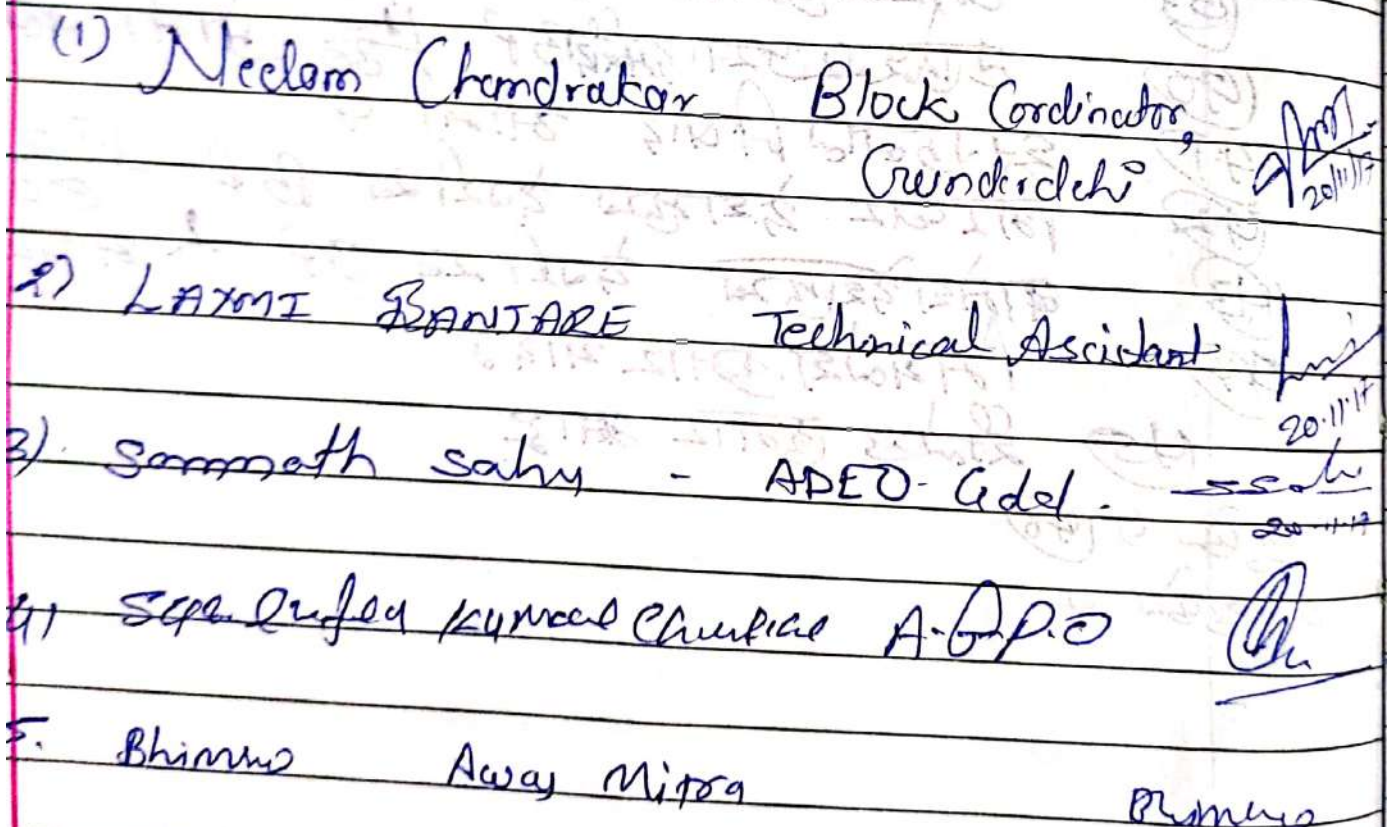 (1) Neelam Chandrakar Block Cordinator,
Gunderdehi
20/11/17
2) LAXMI BANJARE Technical Ascistant
20.11.17
3). Somnath sahu - ADEO- Gdel. ssahu
20-11-17
4) Kumar A.G.P.O
5. Bhimrao Awas Mitra Bhimrao